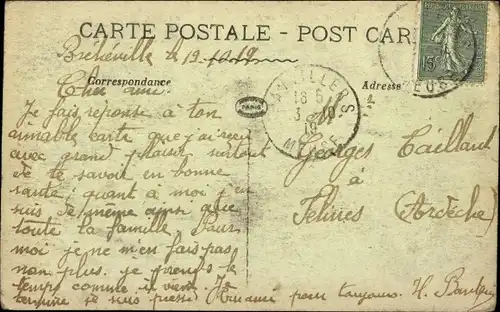 CARTE POSTALE - POST CARD
Bréhéville le 19.10.19
Correspondance
Adresse
PARIS
VILLERS
18 5
3 - 10
19
MEUSE
15
Cher ami.
Je fais réponse à ton
aimable carte que j'ai reçu
avec grand plaisir surtout
de te savoir en bonne
santé; quant à moi j'en
suis de même ainsi que
toute la famille. Pour
moi je ne m'en fais pas
non plus. je prends le
temps comme il vient. Je
termine je suis pressé ami pour toujours. H.
Georges Tailland
à
Félines (Ardèche)